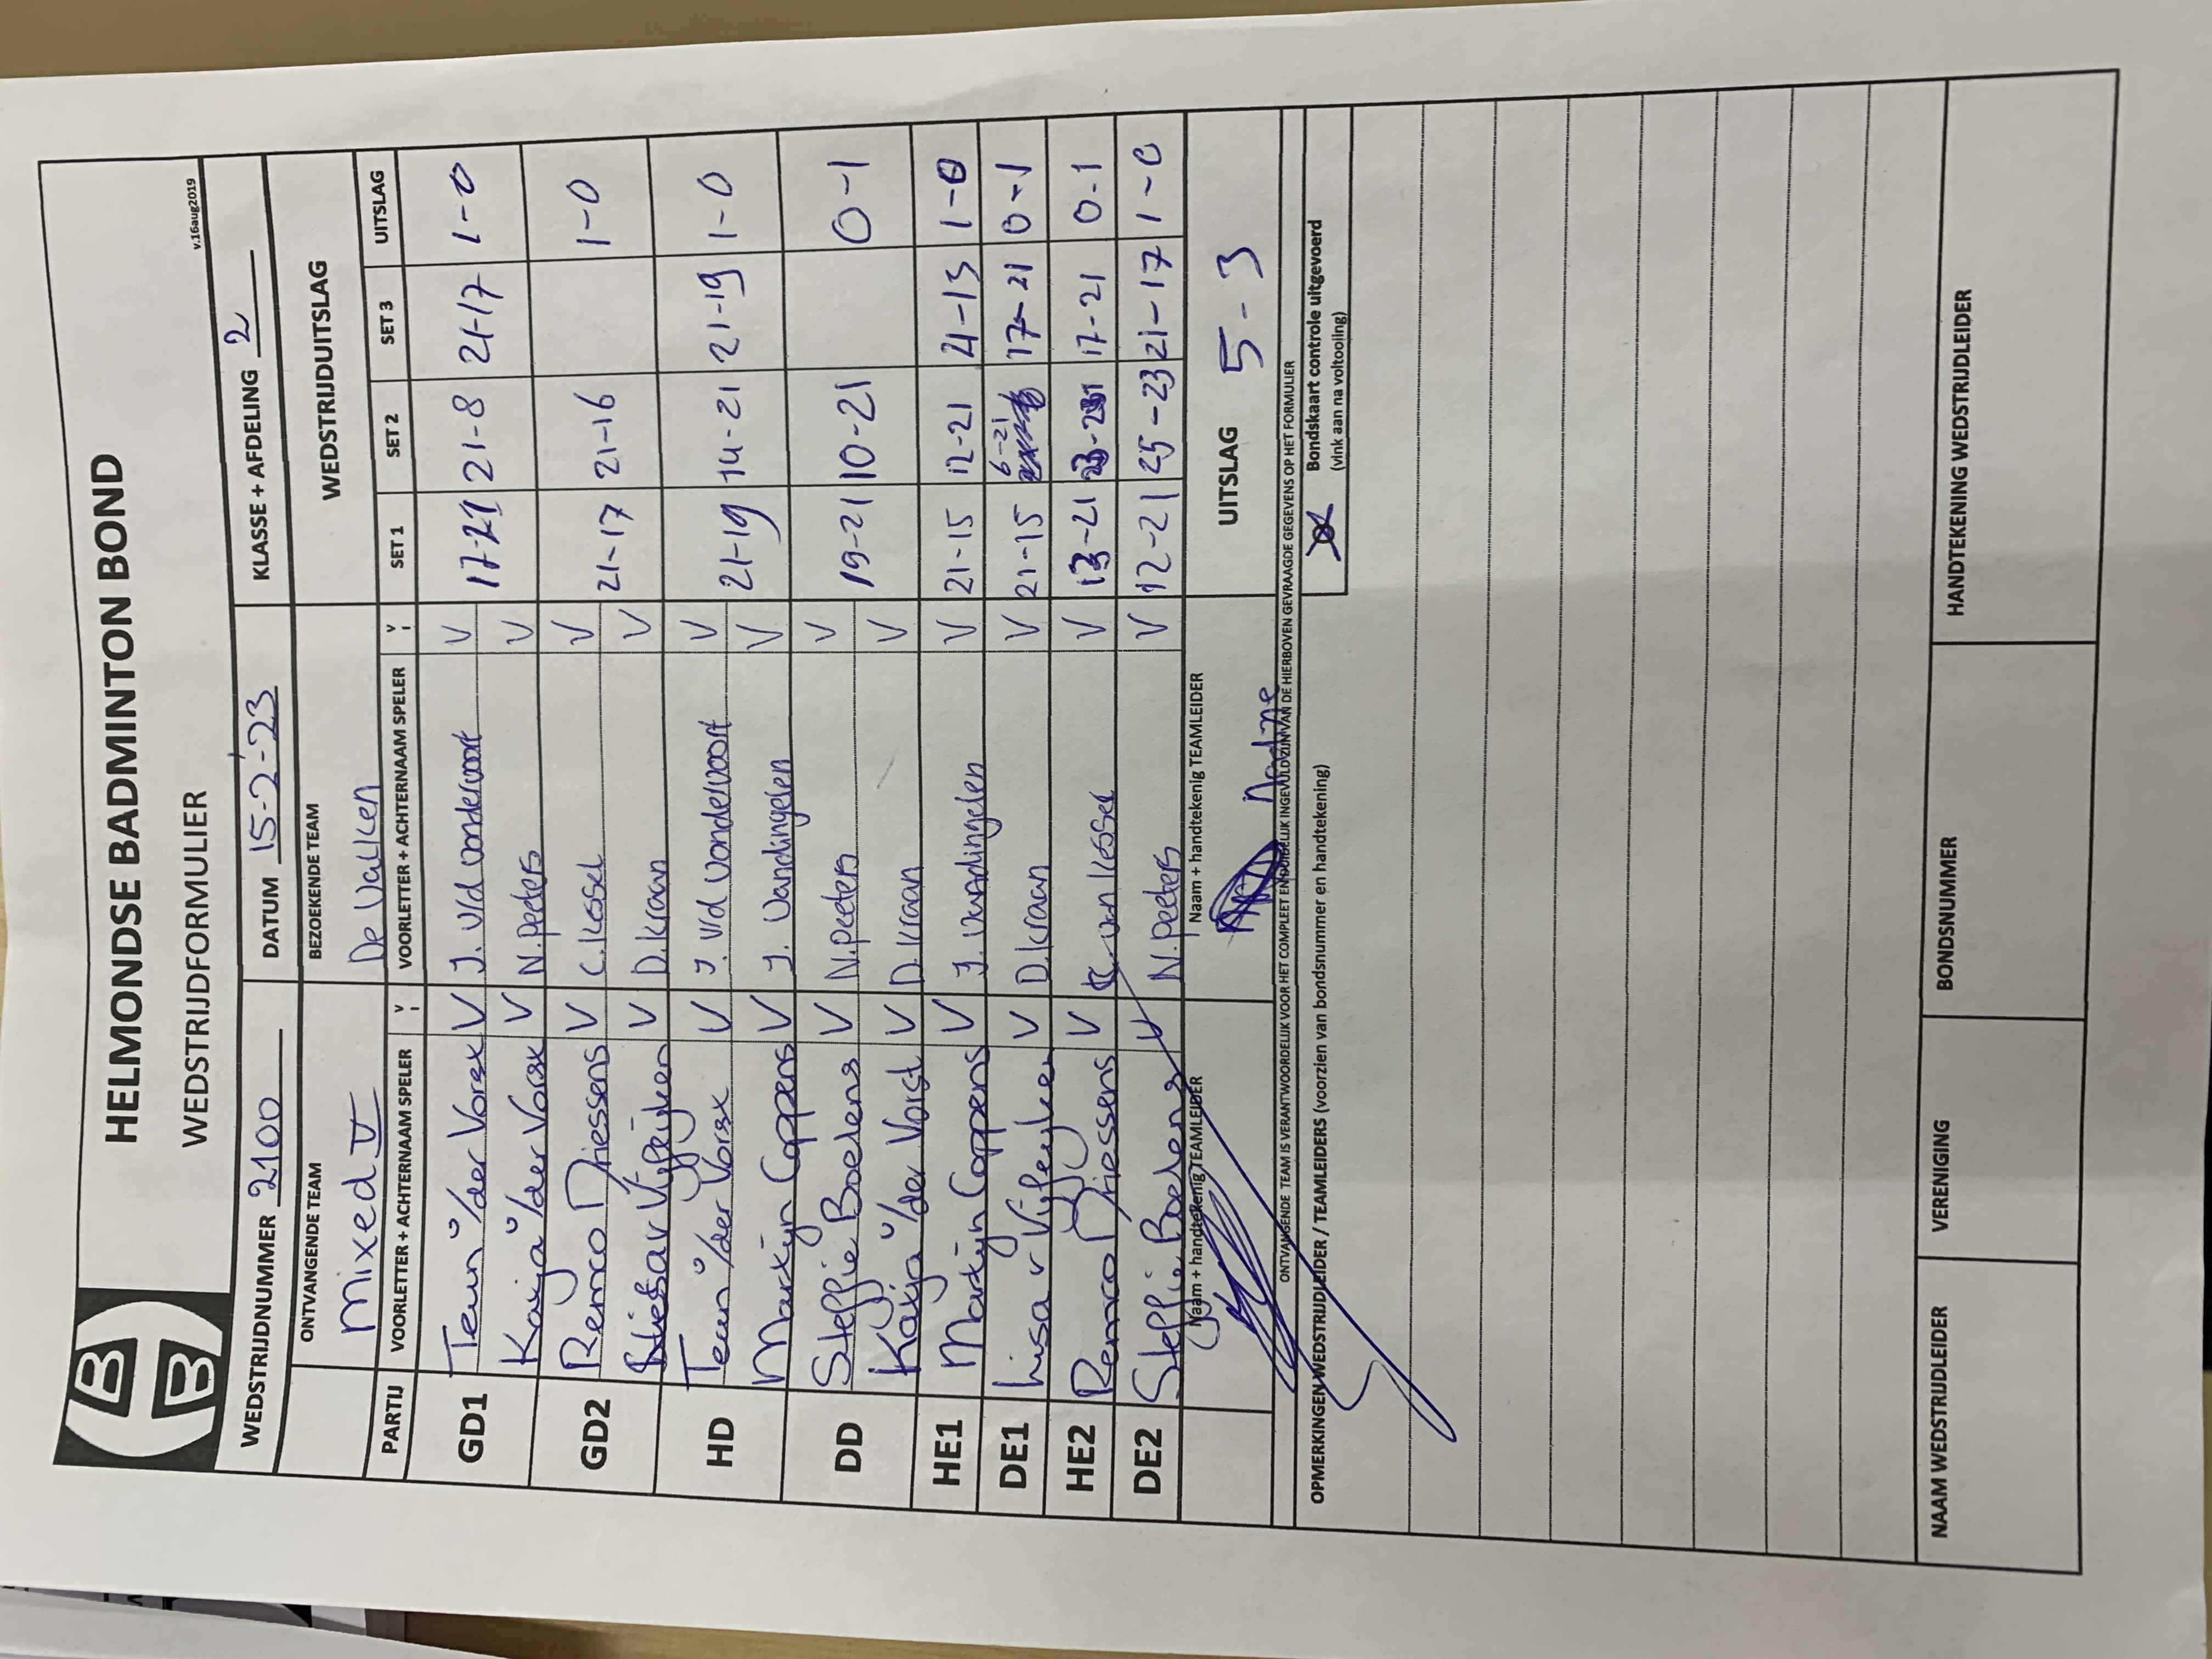 HELMONDSE BADMINTON BOND
WEDSTRIJDFORMULIER
v.16aug2019
WEDSTRIJDNUMMER 2100 DATUM 15-2-'23 KLASSE + AFDELING 2
ONTVANGENDE TEAM BEZOEKENDE TEAM WEDSTRIJDUITSLAG
Mixed V De Valken
PARTIJ VOORLETTER + ACHTERNAAM SPELER V VOORLETTER + ACHTERNAAM SPELER V SET 1 SET 2 SET 3 UITSLAG
GD1 Teun v/der Vorst V J. v/d Vondervoort V 17-21 21-8 21-17 1-0
Katja v/der Vorst V N. Peeters V
GD2 Remco Driessens V C. Kessel V 21-17 21-16 1-0
v Vijfeijken V D. Kraan V
HD Teun v/der Vorst V J. v/d Vondervoort V 21-19 14-21 21-19 1-0
Martijn Coppens V J. Vandingelen V
DD Steffie Boelens V N. Peeters V 19-21 10-21 0-1
Katja v/der Vorst V D. Kraan V
HE1 Martijn Coppens V J. Vandingelen V 21-15 12-21 21-13 1-0
DE1 Lisa v Vijfeijken V D. Kraan V 21-15 6-21 17-21 0-1
HE2 Remco Driessens V C. van Kessel V 13-21 17-21 0-1
DE2 Steffie Boelens V N. Peeters V 12-21 25-23 21-17 1-0
Naam + handtekenig TEAMLEIDER Naam + handtekenig TEAMLEIDER UITSLAG 5-3
Nadine
ONTVANGENDE TEAM IS VERANTWOORDELIJK VOOR HET COMPLEET EN DUIDELIJK INGEVULD ZIJN VAN DE HIERBOVEN GEVRAAGDE GEGEVENS OP HET FORMULIER
OPMERKINGEN WEDSTRIJDLEIDER / TEAMLEIDERS (voorzien van bondsnummer en handtekening) Bondskaart controle uitgevoerd
(vink aan na voltooiing)
NAAM WEDSTRIJDLEIDER VERENIGING BONDSNUMMER HANDTEKENING WEDSTRIJDLEIDER